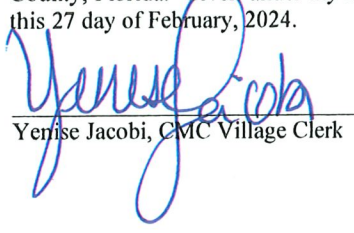 this 27 day of February, 2024.
Yenise Jacobi
Yenise Jacobi, CMC Village Clerk